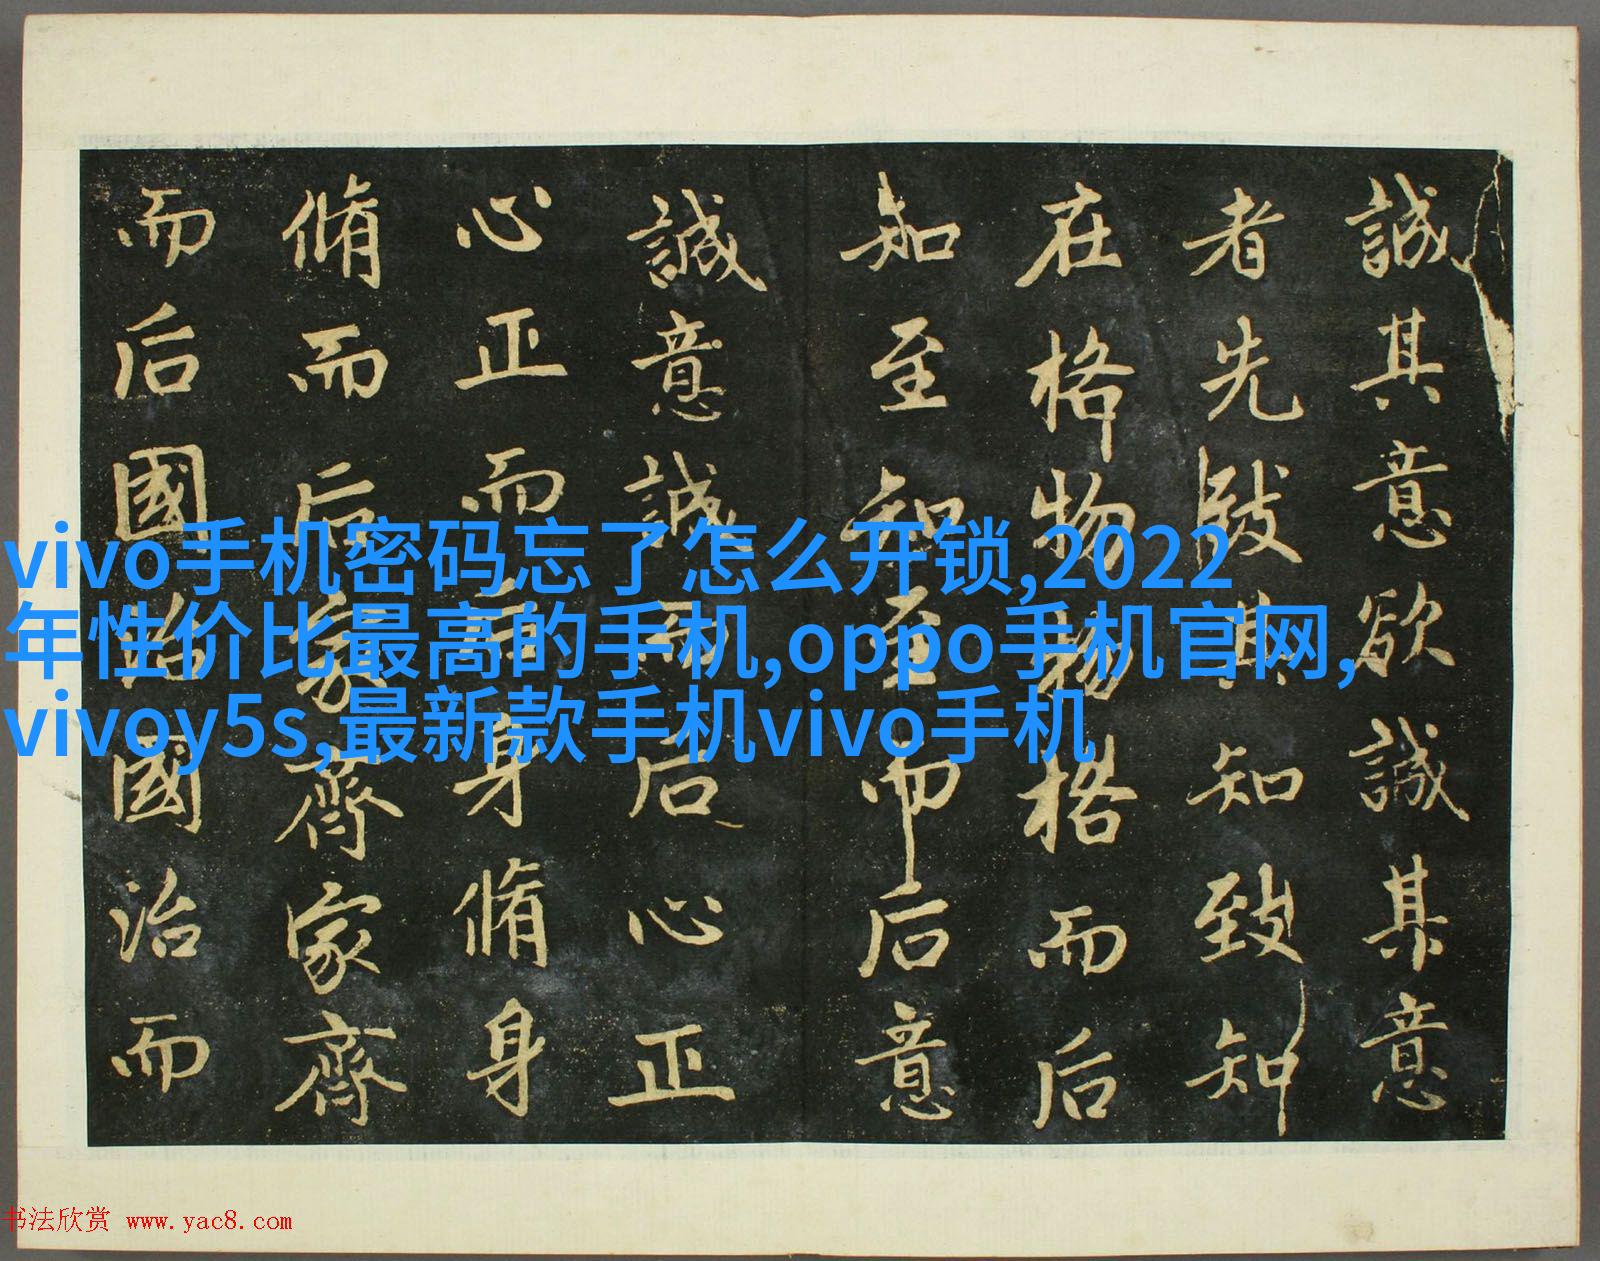 誠其意欲誠其意
者先致其知致知
在格物物格而后
知至知至而后意
誠意誠而后心正
心正而后身脩身
脩而后家齊家齊
而后國治國治而
vivo手机密码忘了怎么开锁,2022
年性价比最高的手机,oppo手机官网,
vivoy5s,最新款手机vivo手机
书法欣赏 www.yac8.com